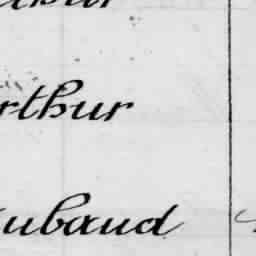 rthur
ubaud